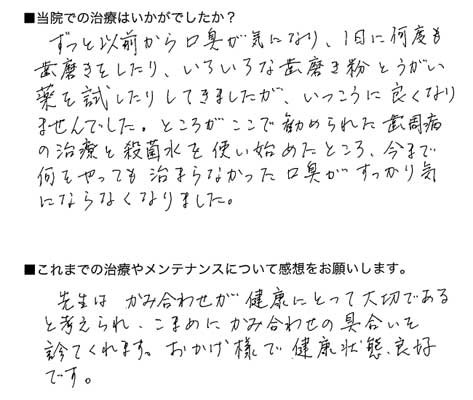 ■当院での治療はいかがでしたか？
ずっと以前から口臭が気になり、1日に何度も
歯磨きをしたり、いろいろな歯磨き粉とうがい
薬を試したりしてきましたが、いっこうに良くなり
ませんでした。ところがここで勧められた歯周病
の治療と殺菌水を使い始めたところ、今まで
何をやっても治まらなかった口臭がすっかり気
にならなくなりました。
■これまでの治療やメンテナンスについて感想をお願いします。
先生は かみ合わせが健康にとって大切である
と考えられ、こまめにかみ合わせの具合いを
診てくれます。おかげ様で健康状態、良好
です。